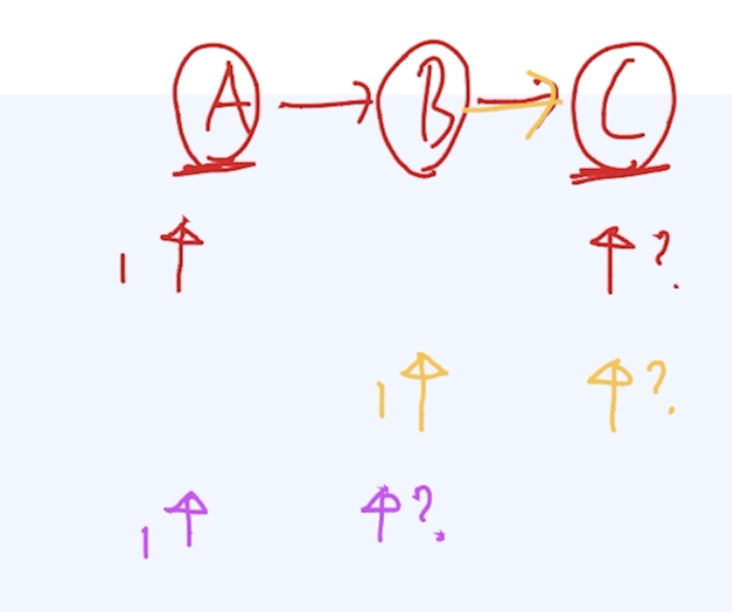 A → B → C
1 ↑ ↑ ?
1 ↑ ↑ ?
1 ↑ ↑ ?